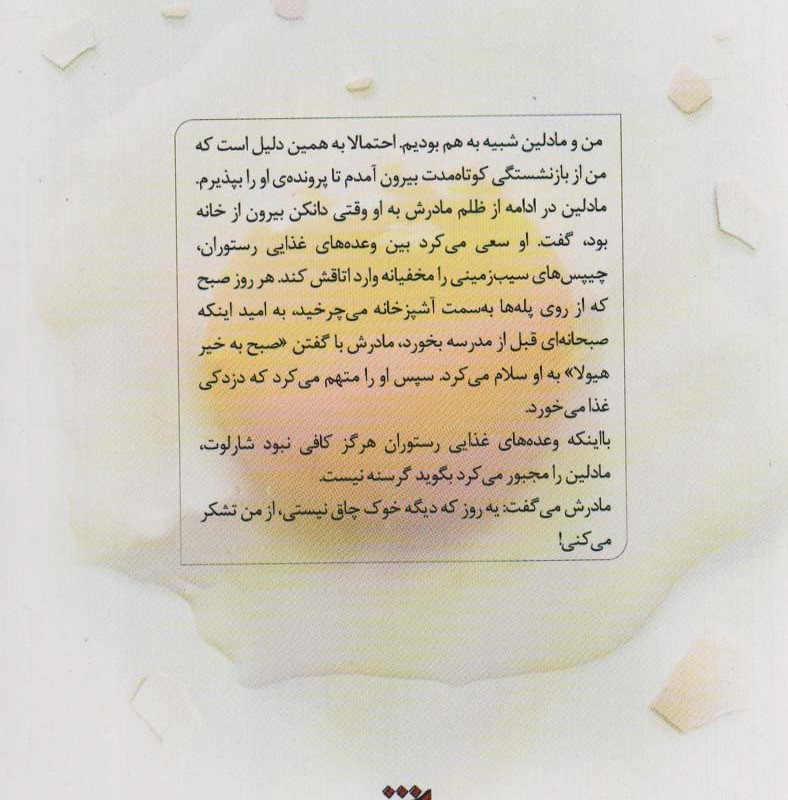 من و مادلین شبیه به هم بودیم. احتمالا به همین دلیل است که
من از بازنشستگی کوتاه‌مدت بیرون آمدم تا پرونده‌ی او را بپذیرم.
مادلین در ادامه از ظلم مادرش به او وقتی دانکن بیرون از خانه
بود، گفت. او سعی می‌کرد بین وعده‌های غذایی رستوران،
چیپس‌های سیب‌زمینی را مخفیانه وارد اتاقش کند. هر روز صبح
که از روی پله‌ها به‌سمت آشپزخانه می‌چرخید، به امید اینکه
صبحانه‌ای قبل از مدرسه بخورد، مادرش با گفتن «صبح به خیر
هیولا» به او سلام می‌کرد. سپس او را متهم می‌کرد که دزدکی
غذا می‌خورد.
بااینکه وعده‌های غذایی رستوران هرگز کافی نبود شارلوت،
مادلین را مجبور می‌کرد بگوید گرسنه نیست.
مادرش می‌گفت: یه روز که دیگه خوک چاق نیستی، از من تشکر
می‌کنی!